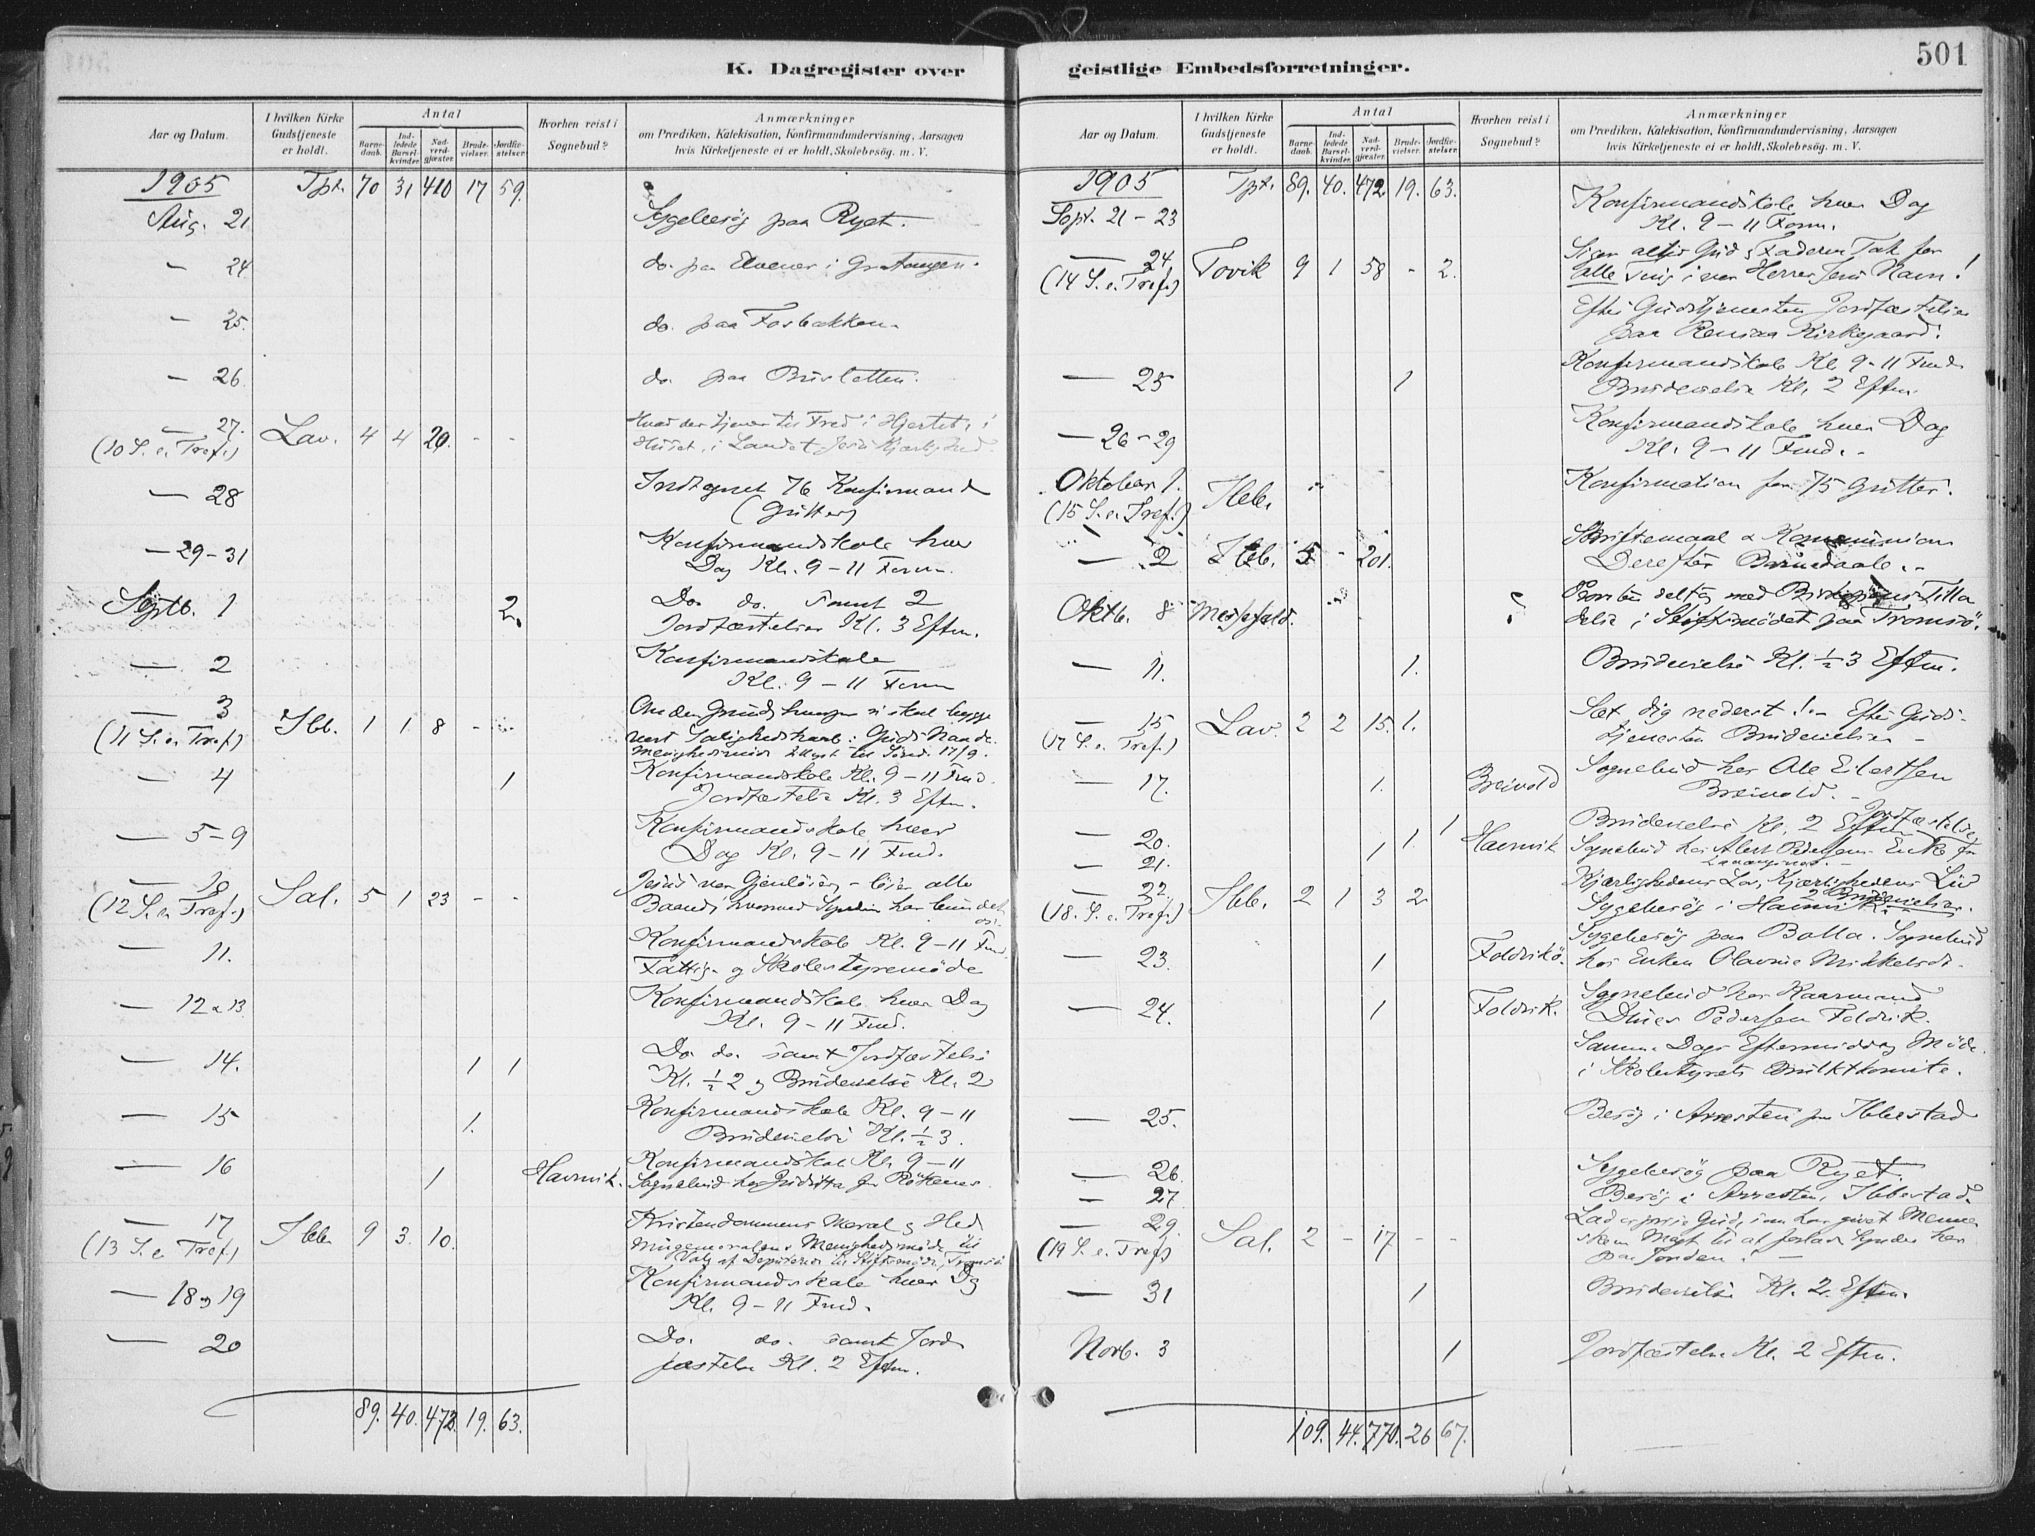 501
K. Dagregister over geistlige Embedsforretninger.
Aar og Datum.
I hvilken Kirke Gudstjeneste er holdt.
Antal
Barne-daab.
Ind-ledede Barsel-kvinder.
Nad-verd-gjæster.
Brude-vielser.
Jordfæ-stelser.
Hvorhen reist i Sognebud?
Anmærkninger
om Prædiken, Katekisation, Konfirmandundervisning, Aarsagen
hvis Kirketjeneste ei er holdt, Skolebesøg. m. V.
1905 Tpt. 70 31 410 17 59.
Aug. 21 Sygebesøg paa Ryet.
- 24 do. paa Elvenes i Gratangen.
- 25. do. paa Fosbakken.
- 26 do. paa
— 27. (10 S. e. Tref.) Lav. 4 4 20. - - Hvad der tjener til Fred i Hjertet, i
Huset, i Landet
— 28 Indtegnet 76 Konfirmand
(Gutter)
— 29-31 Konfirmandskole hver
Dag Kl. 9-11 Form.
Septb. 1 2. Do. do. samt 2
Jordfæstelser Kl. 3 Eftm.
— 2 Konfirmandskole
Kl. 9-11 Form
— 3 (11 S. e. Tref.) Ibb. 1 1 8 - - Om den Grund hvorpaa vi skal bygge
vort Saligheds haab: Guds Naade.
— 4 1 Konfirmandskole Kl. 9-11 Fmd.
Jordfæstelse Kl. 3 Eftm.
— 5-9 Konfirmandskole hver
Dag Kl. 9-11 Fmd.
— 10 (12 S. e. Tref.) Sal. 5 1 23 - - Jesus vor Gjenløser, - løser alle
Baand, hvormed Synden har bundet
os.
— 11. Konfirmandskole Kl. 9-11 Fmd.
Fattig- og Skolestyremøde
— 12 & 13 Konfirmandskole hver Dag
Kl. 9-11 Fmd.
— 14. 1 1 Do. do. samt Jordfæstelse
Kl. ½ 2 og Brudevielse Kl. 2
— 15 1. Konfirmandskole Kl. 9-11
Brudevielse Kl. ½ 3.
— 16 1 Havnvik. Konfirmandskole Kl. 9-11
Sognebud hos
— 17 (13 S. e. Tref.) Ibb. 9 3. 10. Kristendommens Moral og Hed
ningemoralen. Menighedsmøde til
Valg af Deputerede til Stiftsmøde, Tromsø
— 18 og 19 Konfirmandskole hver Dag
Kl. 9-11 Fmd.
— 20 Do. do. samt Jord
fæstelse Kl. 2 Eftm.
89. 40. 472. 19. 63.
Aar og Datum.
I hvilken Kirke Gudstjeneste er holdt.
Antal
Barne-daab.
Ind-ledede Barsel-kvinder.
Nad-verd-gjæster.
Brude-vielser.
Jordfæ-stelser.
Hvorhen reist i Sognebud?
Anmærkninger
om Prædiken, Katekisation, Konfirmandundervisning, Aarsagen
hvis Kirketjeneste ei er holdt, Skolebesøg. m. V.
1905 Tpt. 89. 40. 472 19. 63.
Sept. 21-23 Konfirmandskole hver Dag
Kl. 9-11 Form.
— 24 (14 S. e. Tref.) Tovik 9 1 58 - 2. Siger altid Gud og Faderen Tak for
alle Ting i vor Herres Jesu Navn!
Efter Gudstjenesten Jordfæstelse
paa Rensaa Kirkegaard.
— 25 1 Konfirmandskole Kl. 9-11 Fmd.
Brudevielse Kl. 2 Eftm.
— 26-29 Konfirmandskole hver Dag
Kl. 9-11 Fmd.
Oktober 1. (15 S. e. Tref.) Ibb. Konfirmation for 75 Gutter.
— 2 Ibb. 5 - 201. Skriftemaal & Kommunion
Derefter Barnedaab.
Oktb. 8 Messefald.
delse i Stiftsmødet paa Tromsø.
— 11. 1. Brudevielse Kl. ½ 3 Eftm.
— 15 (17 S. e. Tref.) Lav. 2 2 15. 1. Sæt dig nederst! - Efter Guds-
tjenesten Brudevielse
— 17. 1. Breivold Sognebud hos Ole Eilertsen
Breivold.
— 20. 1. 1 Brudevielse Kl. 2 Eftm. Jordfæstelse
— 21. 1 Havnvik Sognebud hos Albert Pedersens Enke
— 22 (18. S. e. Tref.) Ibb. 2 1 3 2 Kjærlighedens Lov, Kjærlighedens Liv
2 Brudevielser.
Sygebesøg i Havnvik.
— 23. 1 Foldvik. Sygebesøg paa Bolla. Sognebud
hos Enken Olavine Mikkelsdt.
— 24. 1 Foldvik. Sognebud hos Kaarmand
Pedersen Foldvik.
Samme Dags Eftermiddag Møde
i Skolestyrets
— 25. Besøg i Arresten paa Ibbestad
— 26. Sygebesøg paa Ryet.
— 27 Besøg i Arresten, Ibbestad.
— 29. (19 S. e. Tref.) Sal. 2 - 17 - - Lad os prise Gud, som har givet Menne
sken Magt til at forlade Synder her
paa Jorden!
— 31 1 Brudevielse Kl. 2 Eftm.
Novb. 3 1 Jordfæstelse Kl. 2 Eftm.
109. 44. 770. 26 67.